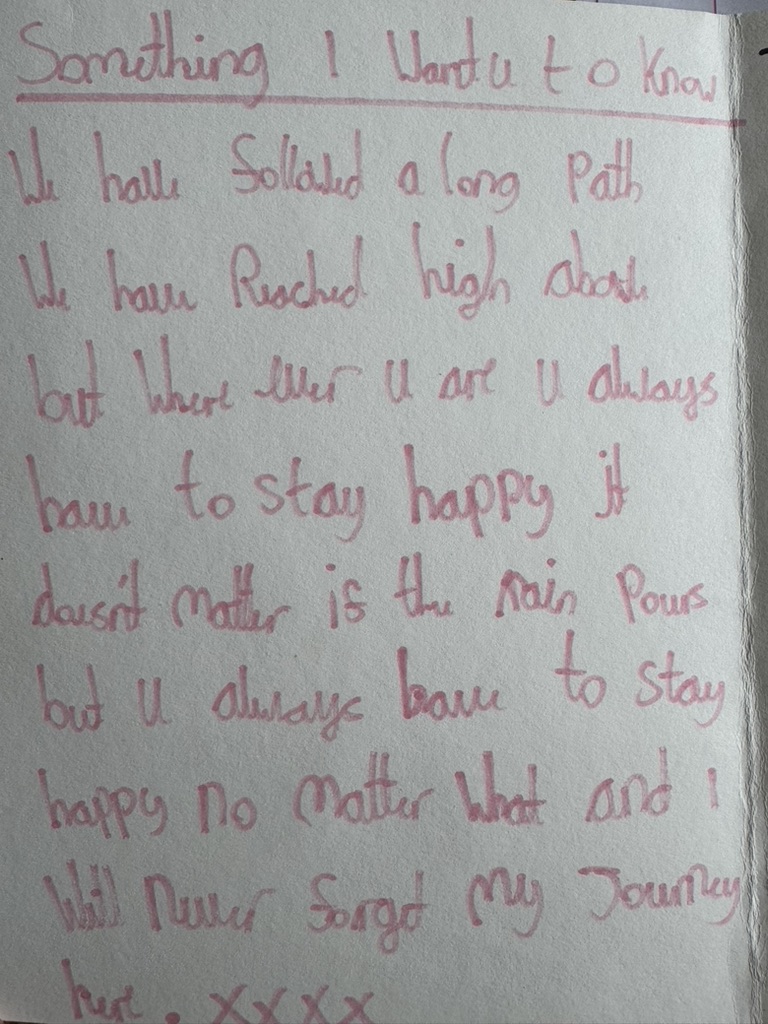 Something I Want u to Know
We have follawed a long Path
We have Reached high above
but Where ever U are U always
have to stay happy it
doesn't matter if the rain Pours
but U always have to stay
happy no matter What and I
Will Never forget My Journey
here. xxxx